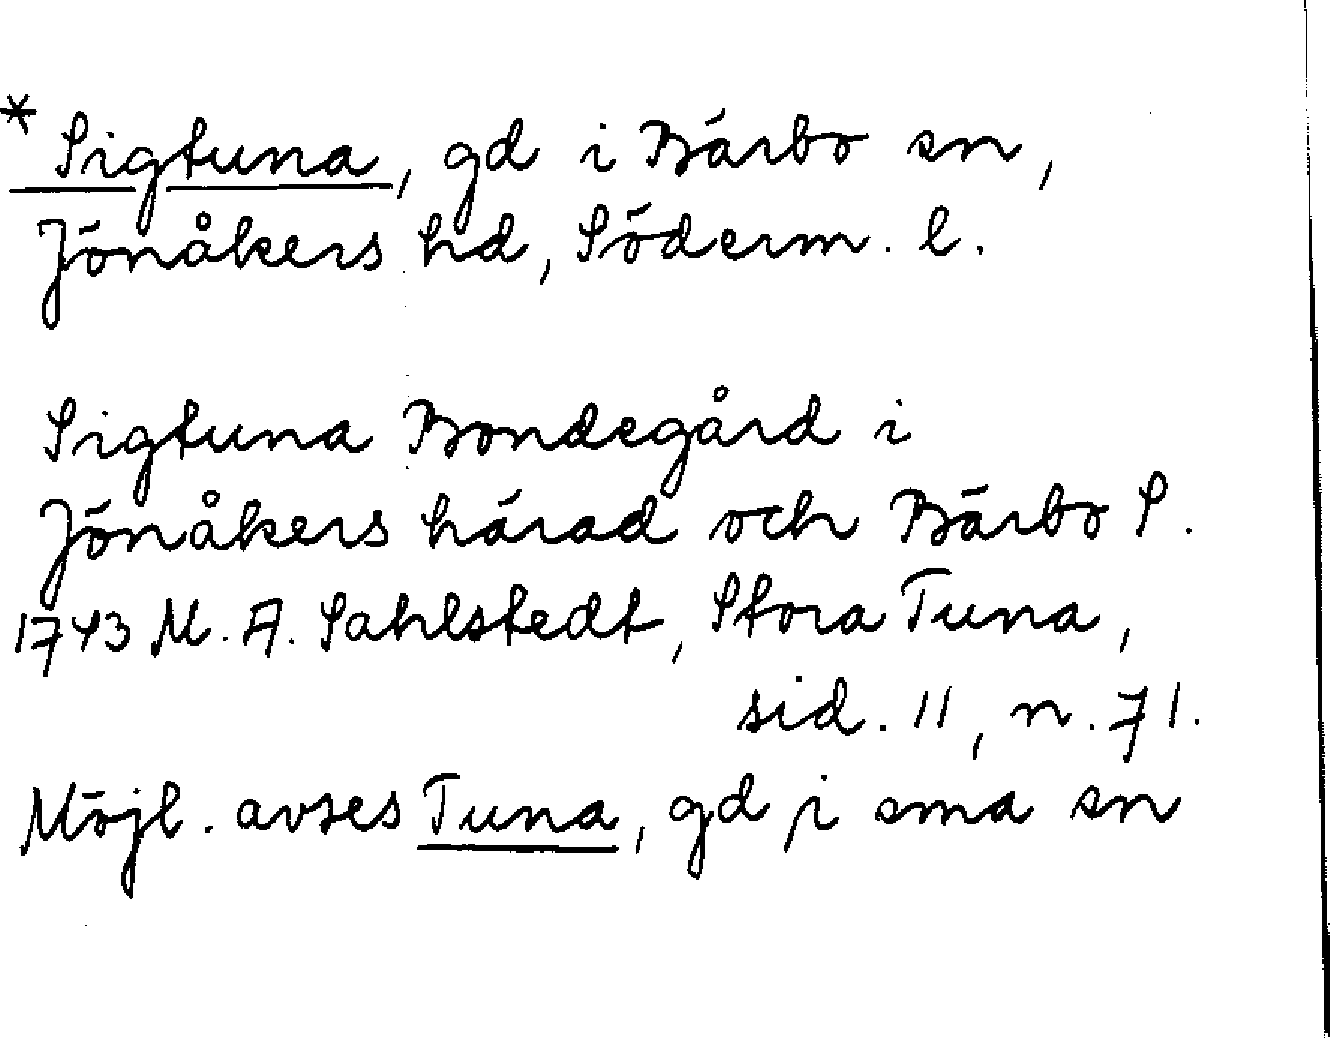 * Sigtuna, gd i Bärbo sn,
Jönåkers hd, Söderm. l.
Sigtuna Bondegård i
Jönåkers härad och Bärbo S.
1743 M. A. Sahlstedt, Stora Tuna,
sid. 11, n. 71.
Möjl. avses Tuna, gd i sma sn